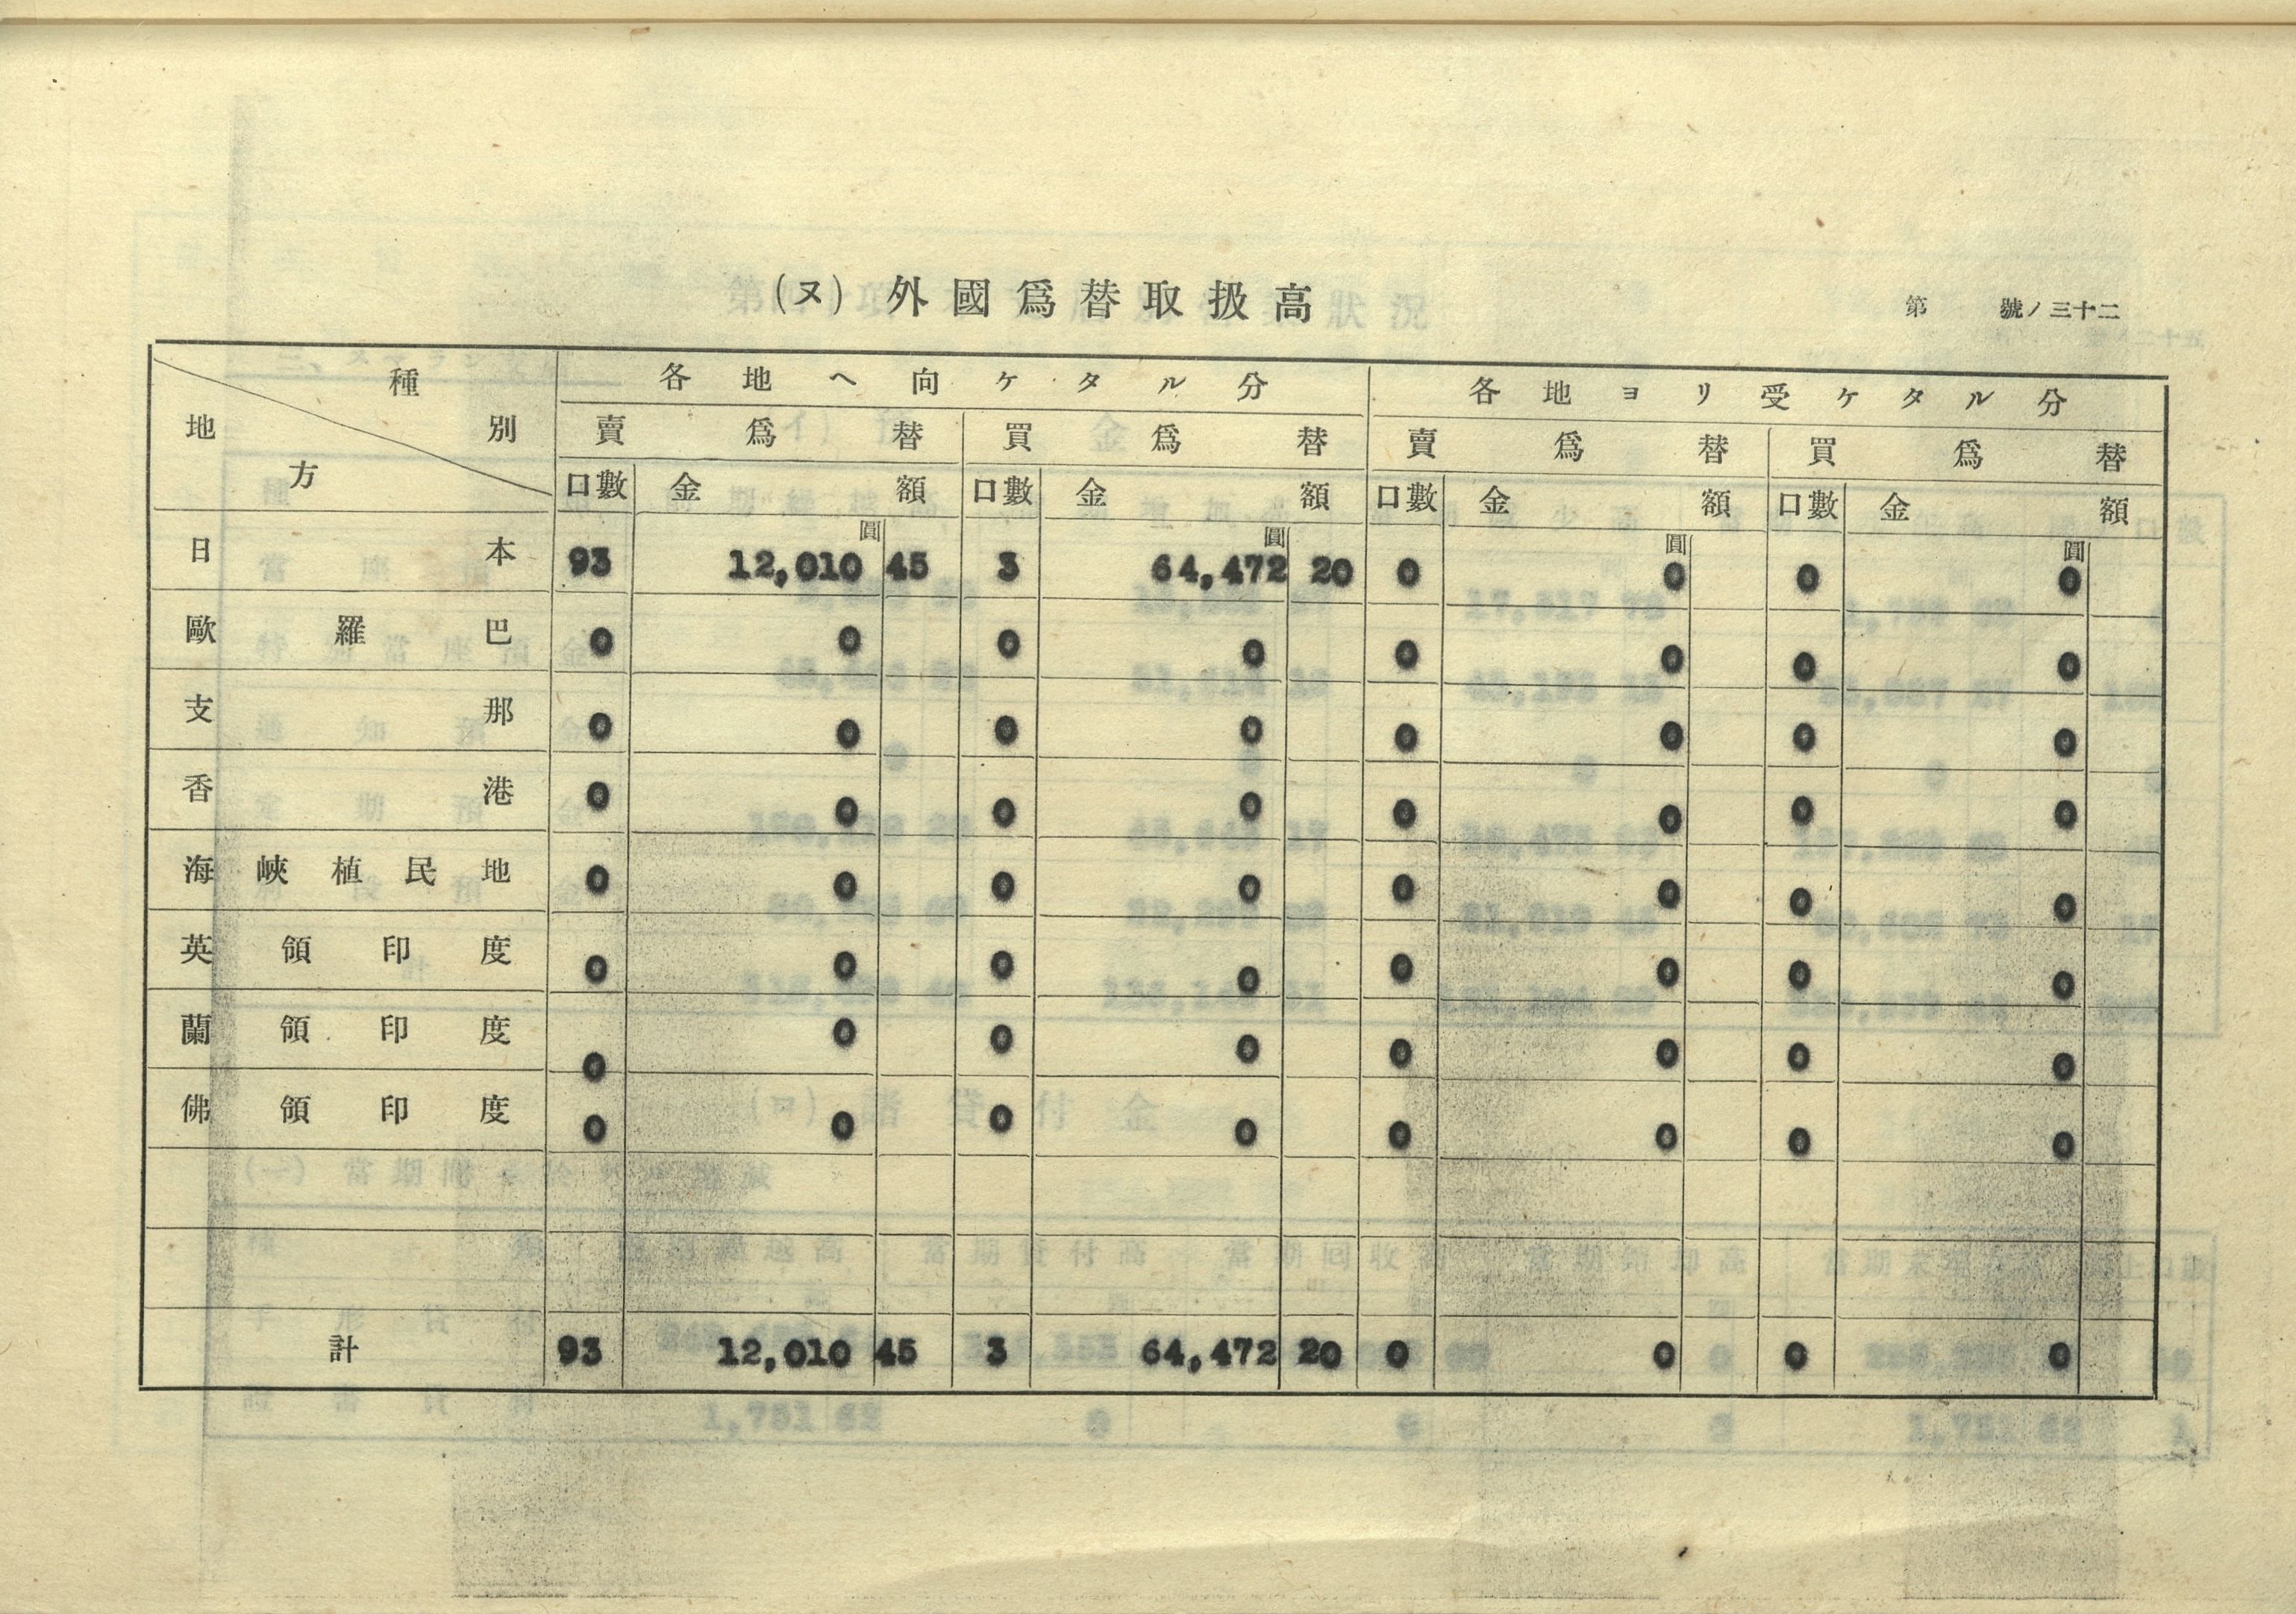 (ヌ) 外國爲替取扱高
第 號ノ三十二
種別 地方 各地ヘ向ケタル分 各地ヨリ受ケタル分
賣爲替 買爲替 賣爲替 買爲替
口數 金額 口數 金額 口數 金額 口數 金額
圓 圓 圓 圓
日本 93 12,010 45 3 64,472 20 0 0 0 0
歐羅巴 0 0 0 0 0 0 0 0
支那 0 0 0 0 0 0 0 0
香港 0 0 0 0 0 0 0 0
海峽植民地 0 0 0 0 0 0 0 0
英領印度 0 0 0 0 0 0 0 0
蘭領印度 0 0 0 0 0 0 0 0
佛領印度 0 0 0 0 0 0 0 0
計 93 12,010 45 3 64,472 20 0 0 0 0